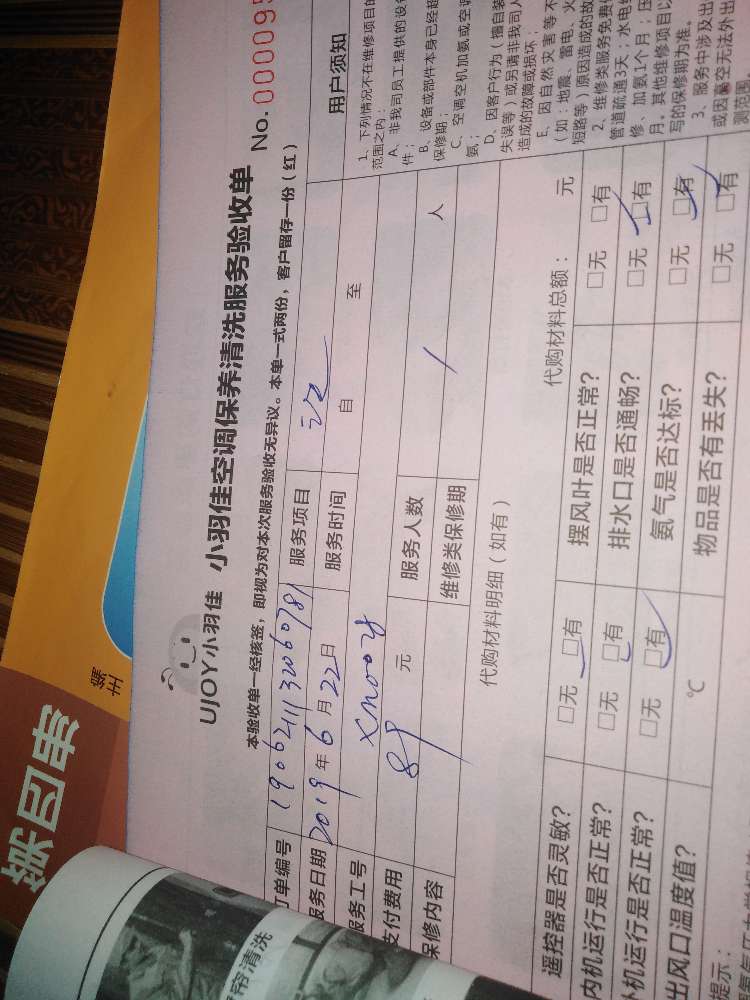 UJOY小羽佳 小羽佳空调保养清洗服务验收单
No. 000095
本验收单一经核签，即视为对本次服务验收无异议。本单一式两份，客户留存一份（红）
订单编号 190621132060781 服务项目
服务日期 2019年6月22日 服务时间 自 至
服务工号 xm004
支付费用 89元 服务人数 1人
保修内容 维修类保修期
代购材料明细（如有） 代购材料总额： 元
遥控器是否灵敏？ □无 □有 摆风叶是否正常？ □无 □有
内机运行是否正常？ □无 □有 排水口是否通畅？ □无 □有
机运行是否正常？ □无 □有 氨气是否达标？ □无 □有
出风口温度值？ ℃ 物品是否有丢失？ □无 □有
提示：
用户须知
1、下列情况不在维修项目的
范围之内：
A、非我司员工提供的设
件；
B、设备或部件本身已经超
保修期；
C、空调空机加氨或空调
氨；
D、因客户行为（擅自装
失误等）或另请非我司人
造成的故障或损坏；
E、因自然灾害等不
（如：地震、雷电、火
短路等）原因造成的故
2、维修类服务免费
管道疏通3天；水电
修、加氨1个月；压
月。其他维修项目以
写的保修期为准。
3、服务中涉及出
或因高空无法外出
测范围
帘清洗